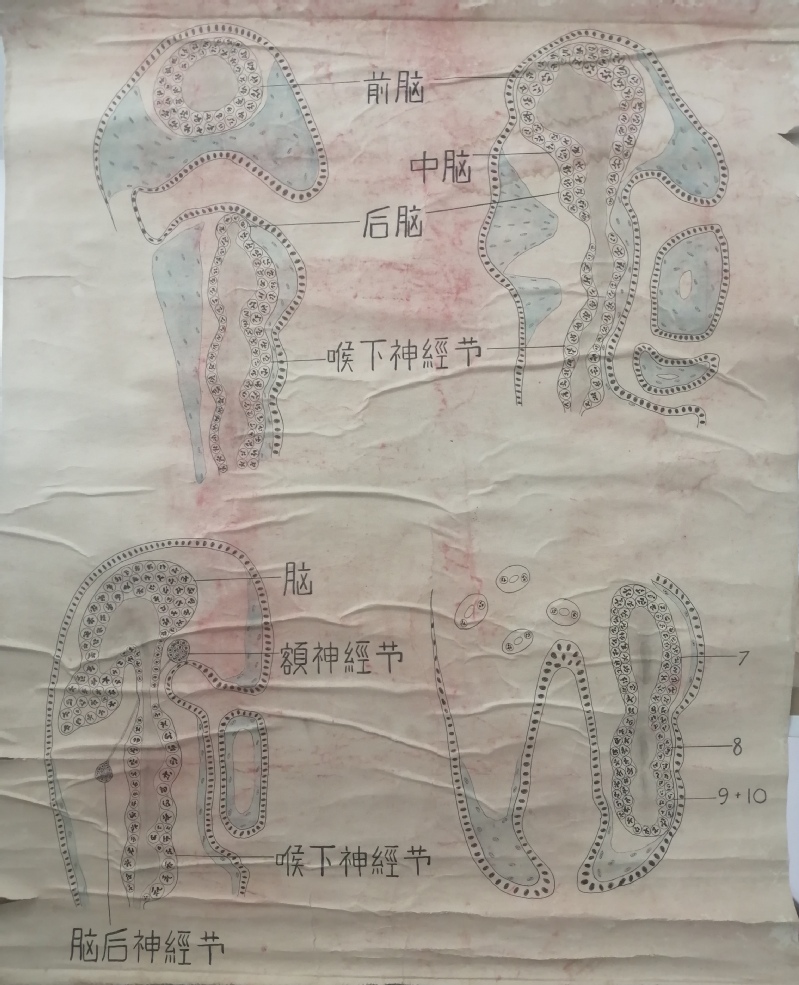 前脑
中脑
后脑
喉下神經节
脑
額神經节
7
8
9+10
喉下神經节
脑后神經节